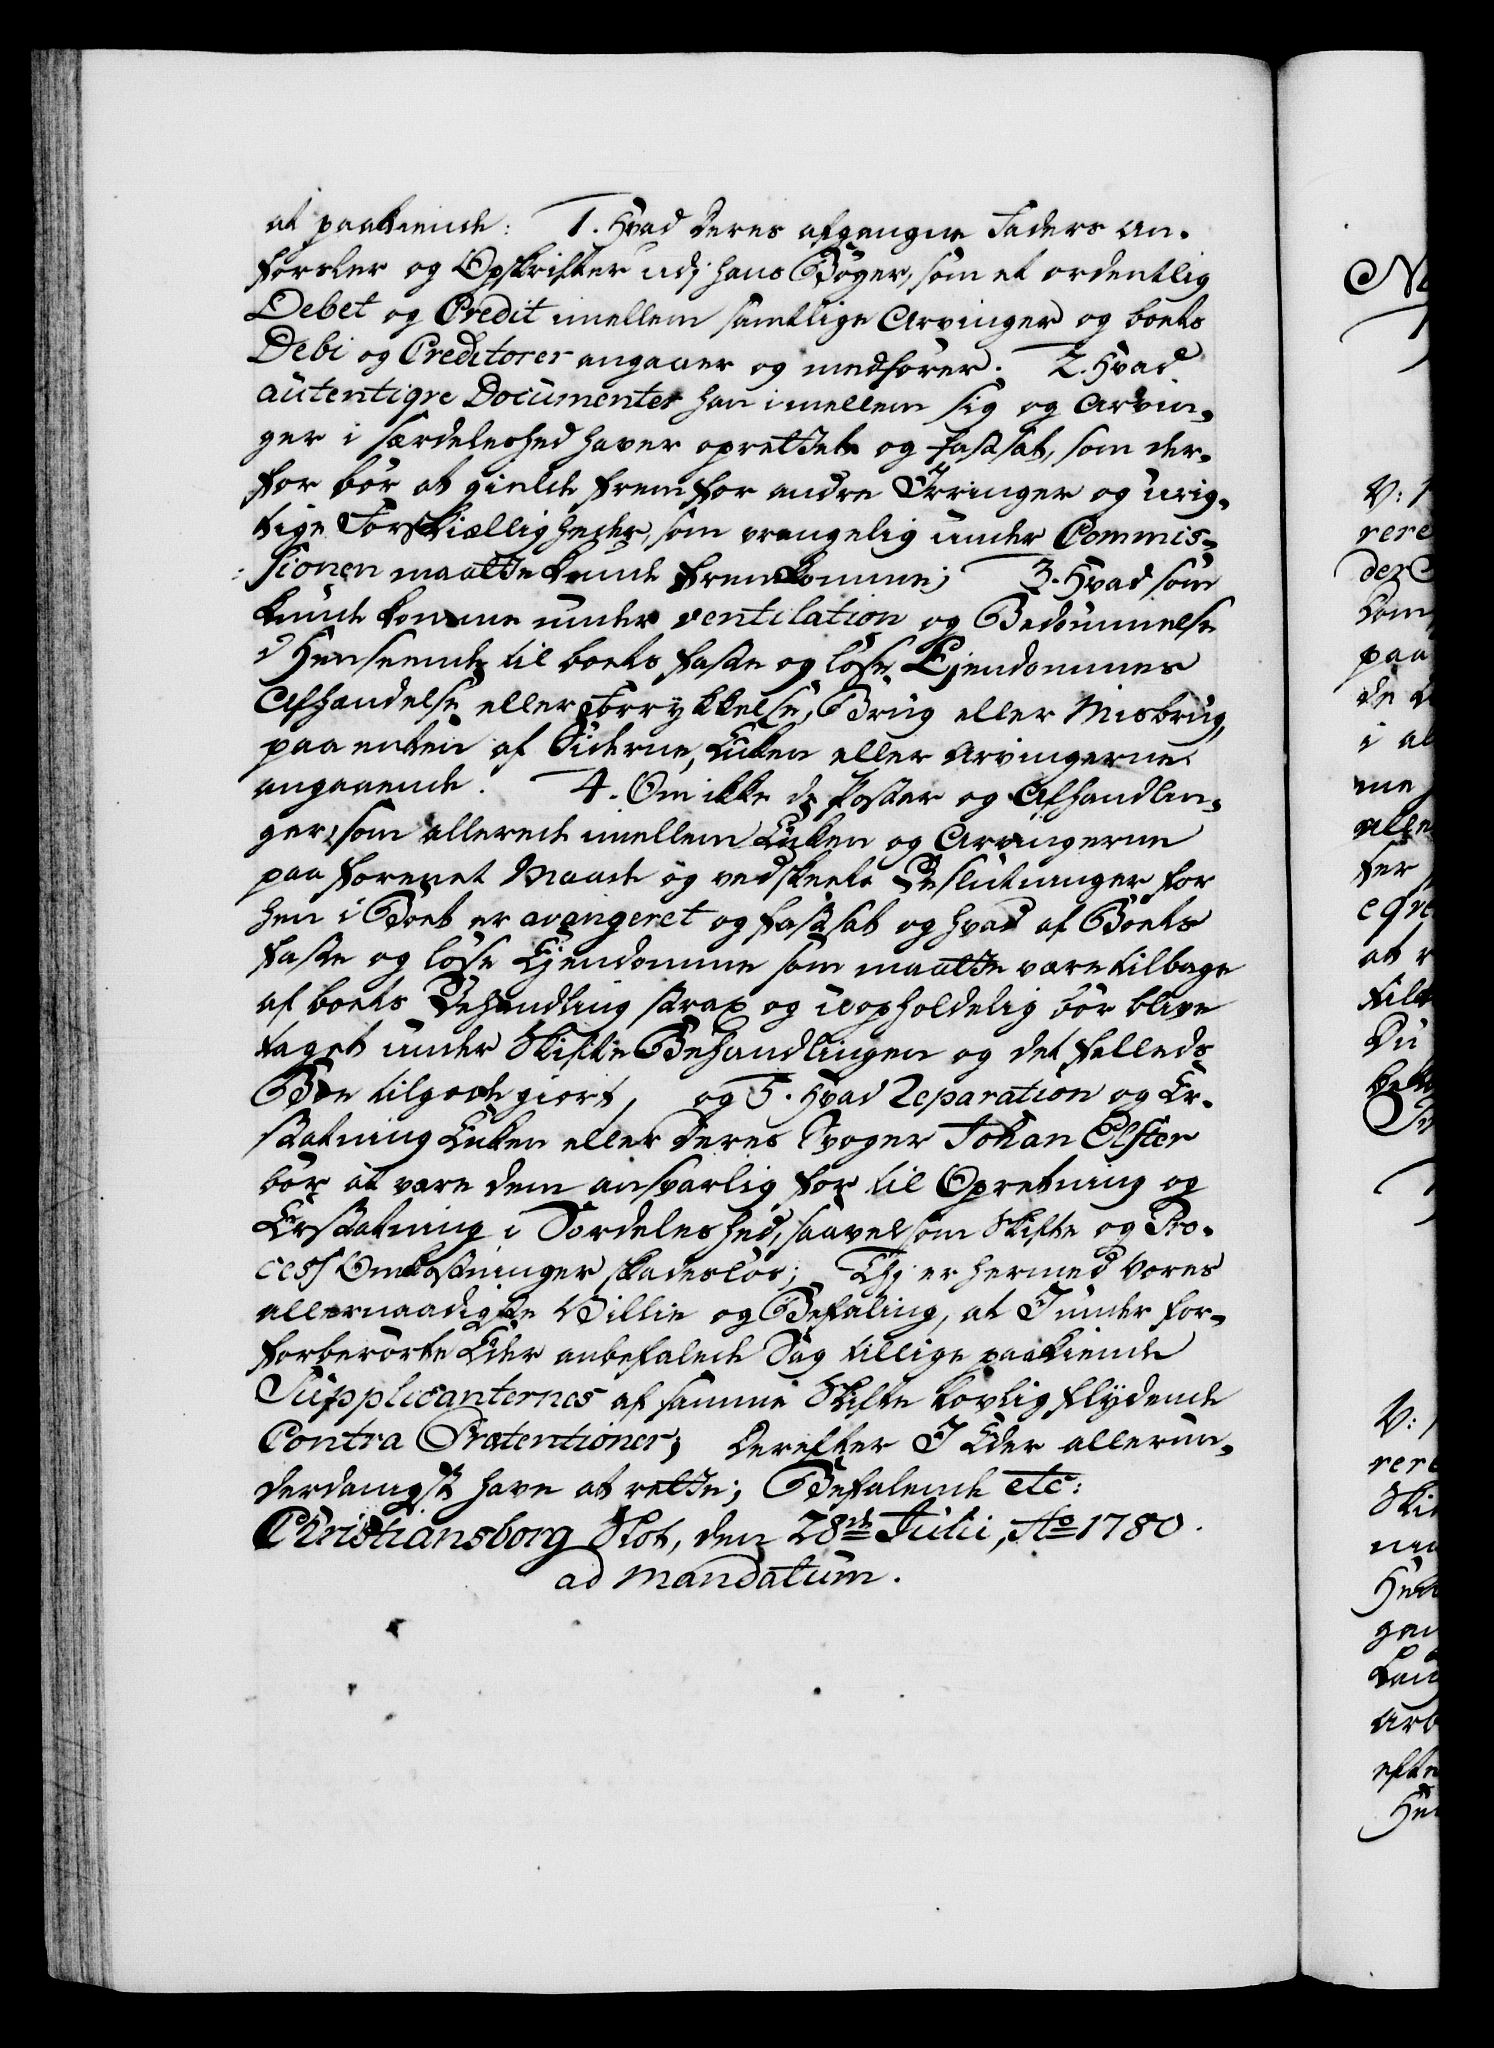 at paakiende: 1. Hvad deres afgangne Faders An-
førsler og Opskrifter udj hans Bøger, som et ordentlig
Debet og Credit imellem samtlige Arvinger og boets
Debi og Creditorer angaaer og medfører. 2. Hvad
autentiqve Documenter han imellem sig og Arvin-
ger i særdeleshed haver oprettet og fastsat, som der-
for bør at gielde frem for andre Erringer og urig-
tige Forskiælligheder, som vrangelig under Commis-
sionen maatte kunde fremkomme; 3. Hvad som
kunde komme under ventilation og Bedømmelse
i Henseende til boets faste og løse Ejendommes
Afhandelse eller Forrykkelse, Brug eller Misbrug,
paa enten af Siderne, Enken eller Arvingerne
angaaende. 4. Om ikke de Poster og Afhandlin-
ger, som allerede imellem Enken og Arvingerne
paa forenet Maade og vedskeete Beslutninger for
hen i Boet er arangeret og fastsat og hvad af Boets
faste og løse Ejendomme som maatte være tilbage
af boets Behandling strax og uopholdelig bør blive
taget under Skifte Behandlingen og det fælleds
Boe tilgode giort, og 5. Hvad Reparation og Er-
statning Enken eller deres Svoger Johan Elster
bør at være dem ansvarlig for til Opretning og
Erstatning i Særdeleshed, saavelsom Skifte og Pro-
cess Omkostninger skadesløs; Thj er hermed Vores
allernaadigste Villie og Befaling, at I under for-
forberørte Eder anbefalede Sag tillige paakiende
Supplicanternes af samme Skifte lovlig flydende
Contra Prætentioner; Derefter I Eder allerun-
derdanigst have at rette; Befalende etc:
Christiansborg Slot, den 28de Julii, Ao 1780.
ad mandatum.